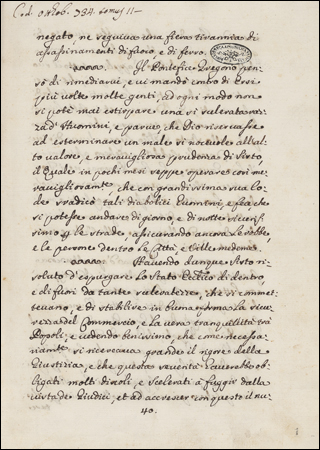 Cod. Ottob. 784. tomus II
negato ne seguiva una fiera tirannia di
assassinamenti di fuoco e di ferro.
Il Pontefice Gregorio pen-
sò di rimediarvi, e vi mandò contro di Essi
più volte molte genti, ad ogni modo non
si potè mai estirpare una sì scelerata raz-
za d'Huomini, e parve, che Dio riservasse
ad esterminare un male sì nocivole all'al-
to valore, e meravigliosa prudenza di Sisto,
il quale in pochi mesi seppe operare così me-
ravigliosamte, che con grandissima sua lo-
de sradicò tali diabolici Huomini, e fra che
si potesse andare di giorno, e di notte sicuriss-
imo le strade, assicurando ancora le robbe,
e le persone dentro le Città, e Ville medeme.
Havendo dunque Sisto ri-
soluto d'espurgare lo Stato Eccl.co di dentro,
e di fuori da tante sceleratezze, che si commet-
tevano, e di stabilire in buona forma la sicu-
rezza del Commercio, e la vera tranquillità trà
Popoli, e vedendo benissimo, che come neces-
riamte si ricercava grande il rigore della
Giustizia, e che questa severità haverebbe ob-
ligati molti discoli, e scelerati à fuggir dalla
vista de Giudici, et ad accrescer con questo il nu-
40.